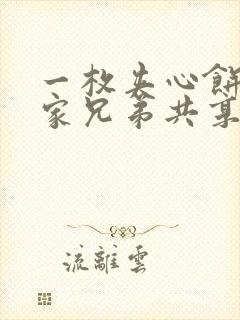 一枚夹心餅
家兄弟共
流離雲